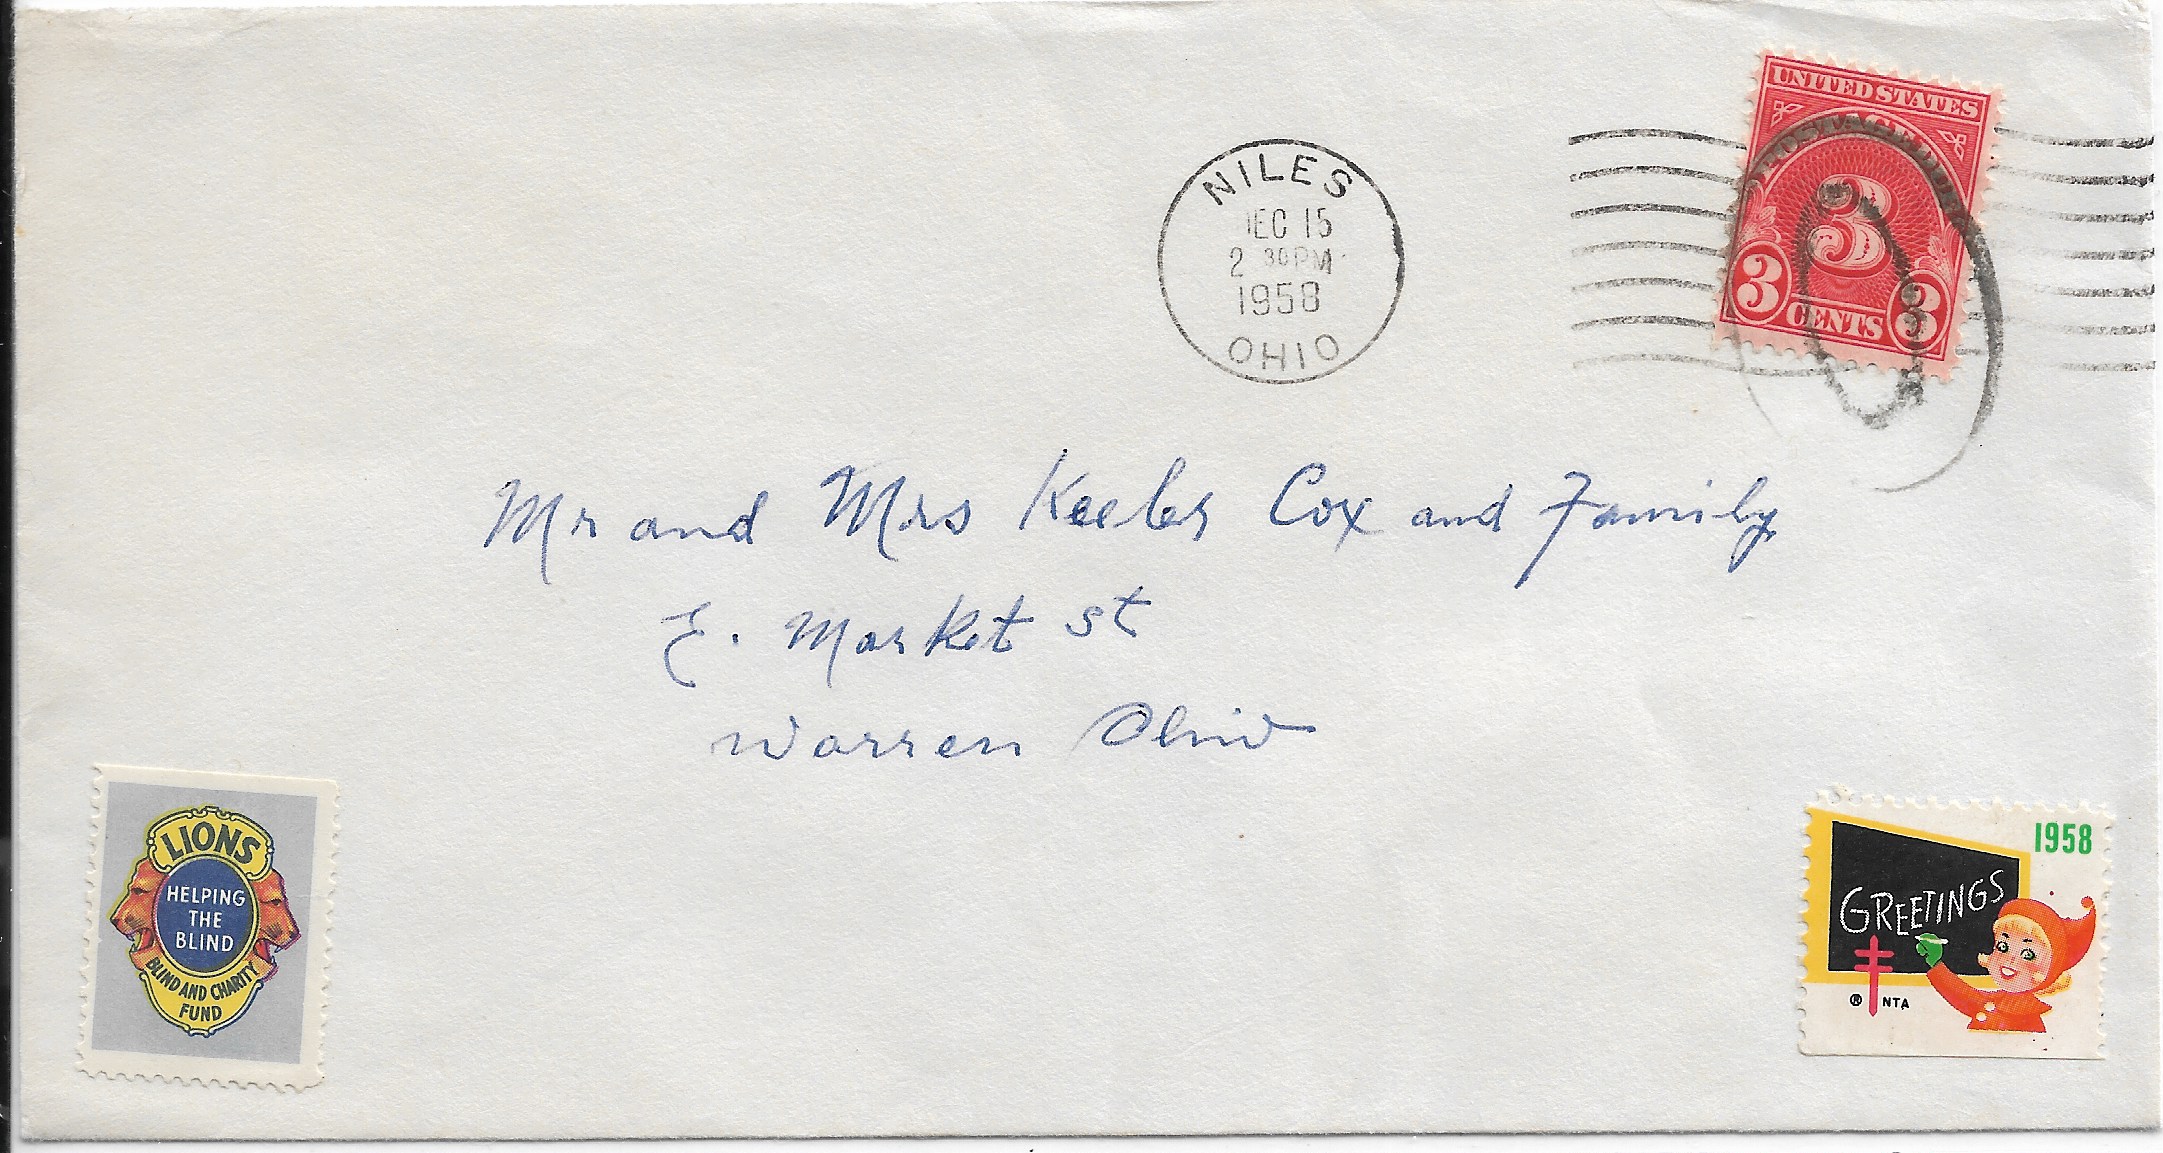 UNITED STATES
POSTAGE DUE
3
3 CENTS 3
NILES
DEC 15
2 30 PM
1958
OHIO
Mr and Mrs Keeler Cox and Family
E. Market St
Warren Ohio
LIONS
HELPING
THE
BLIND
BLIND AND CHARITY
FUND
1958
GREETINGS
® NTA